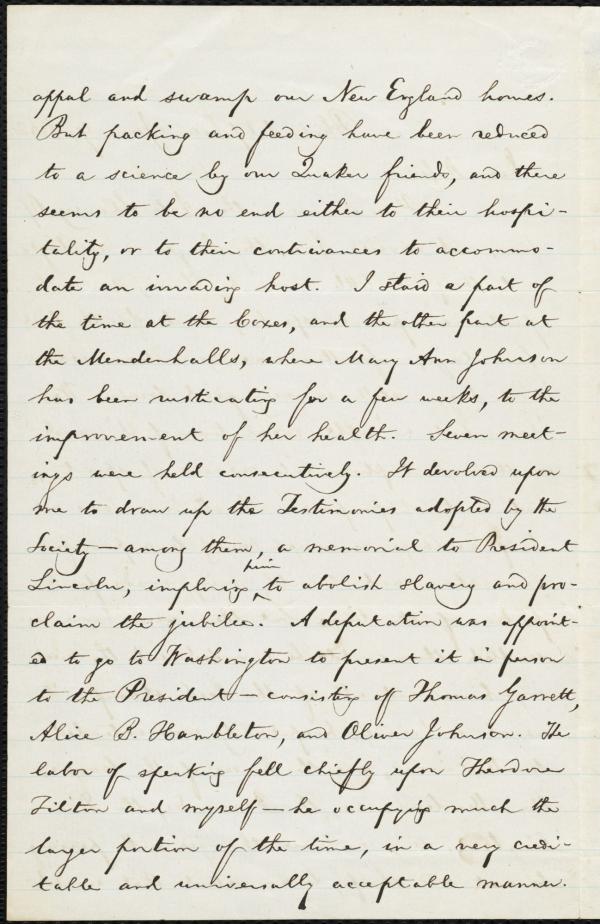 appal and swamp our New England homes.
But packing and feeding have been reduced
to a science by our Quaker friends, and there
seems to be no end either to their hospi-
tality, or to their contrivances to accommo-
date an invading host. I staid a part of
the time at the Coxes, and the other part at
the Mendenhalls, where Mary Ann Johnson
has been rusticating for a few weeks, to the
improvement of her health. Seven meet-
ings were held consecutively. It devolved upon
me to draw up the Testimonies adopted by the
Society — among them, a memorial to President
Lincoln, imploring him to abolish slavery and pro-
claim the jubilee. A deputation was appoint-
ed to go to Washington to present it in person
to the President — consisting of Thomas Garrett,
Alice B. Hambleton, and Oliver Johnson. The
labor of speaking fell chiefly upon Theodore
Tilton and myself — he occupying much the
larger portion of the time, in a very credi-
table and universally acceptable manner.